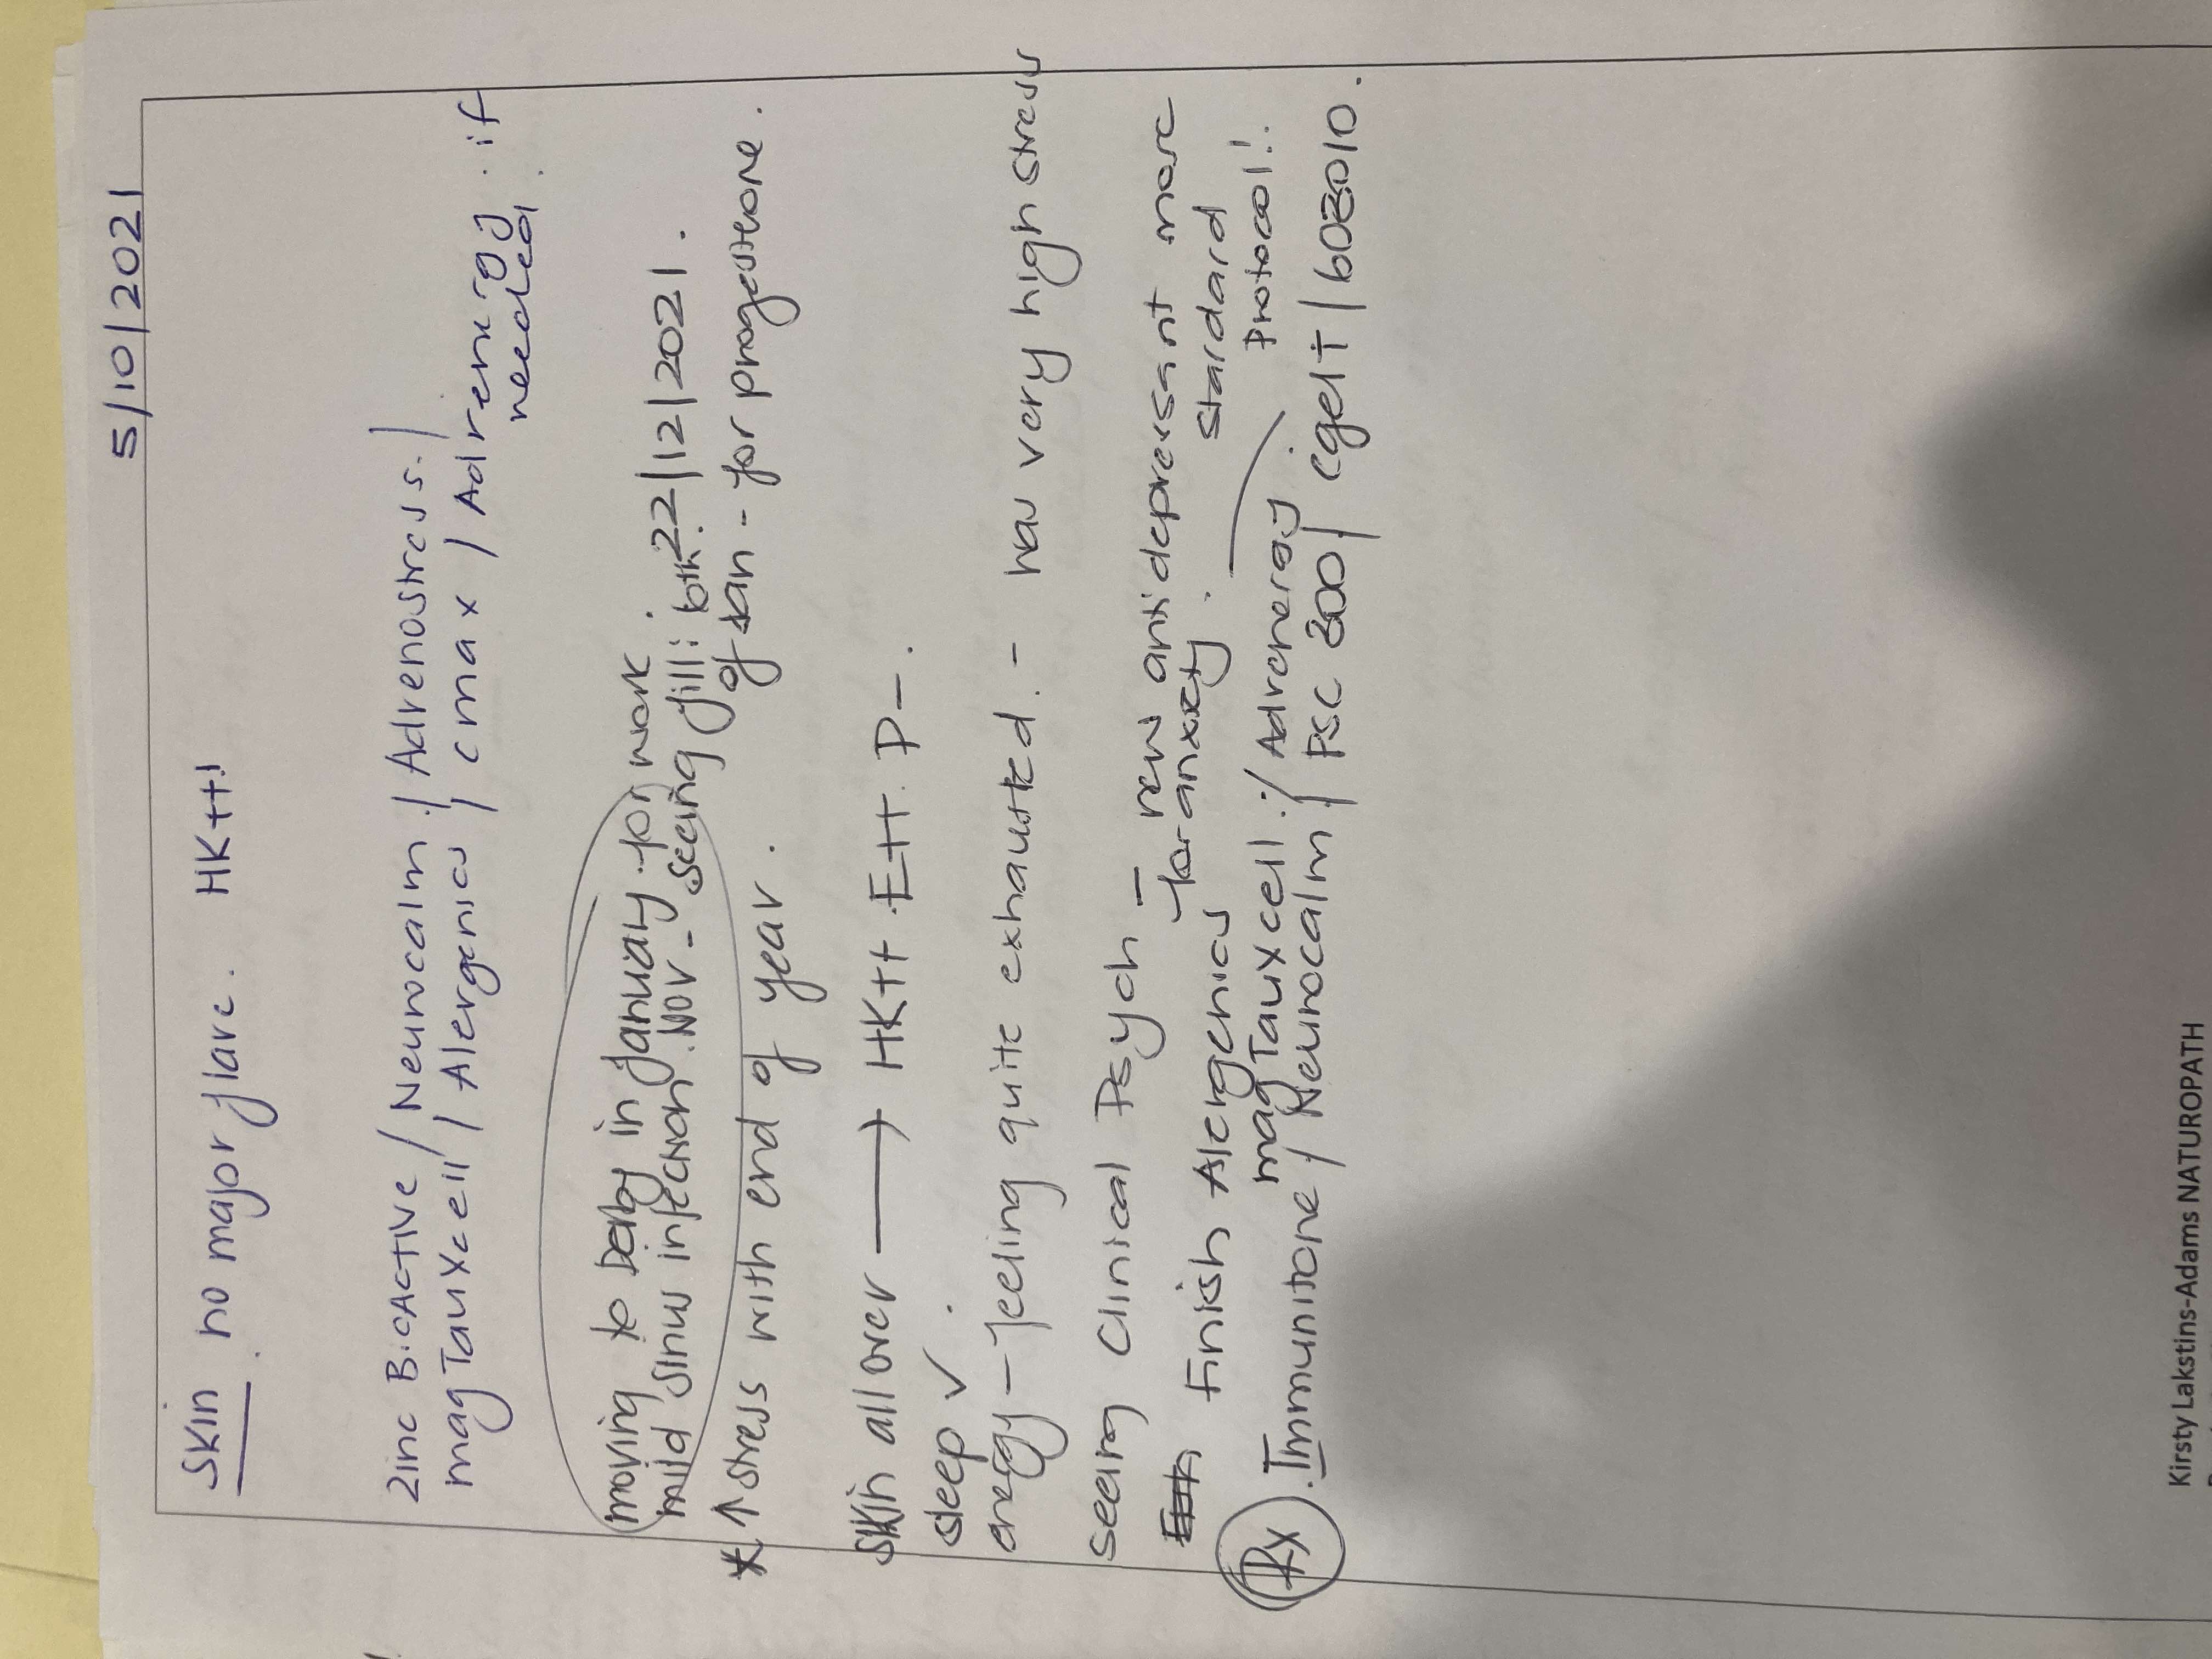 5/10/2021
Skin no major flare. HK++
Zinc Bioactive / Neurocalm / Adrenostress /
mag Tauxcell / Alergenics / cmax / Adrenergy if
needed
22/12/2021.
moving to Derby in January for work.
mild sinus infection Nov - seeing Jill: 6th
of Jan - for progesterone.
* ↑ stress with end of year.
Skin all over → HK++ E++ P-.
sleep ✓.
energy - feeling quite exhausted. - has very high stress
seeing Clinical Psych - new antidepressant more
for anxiety. standard
Protocol!.
Finish Alergenics
mag Tauxcell / Adrenergy.
Rx Immunitone / Neurocalm / PSC 300 / cgel + / 603010.
Kirsty Lakstins-Adams NATUROPATH